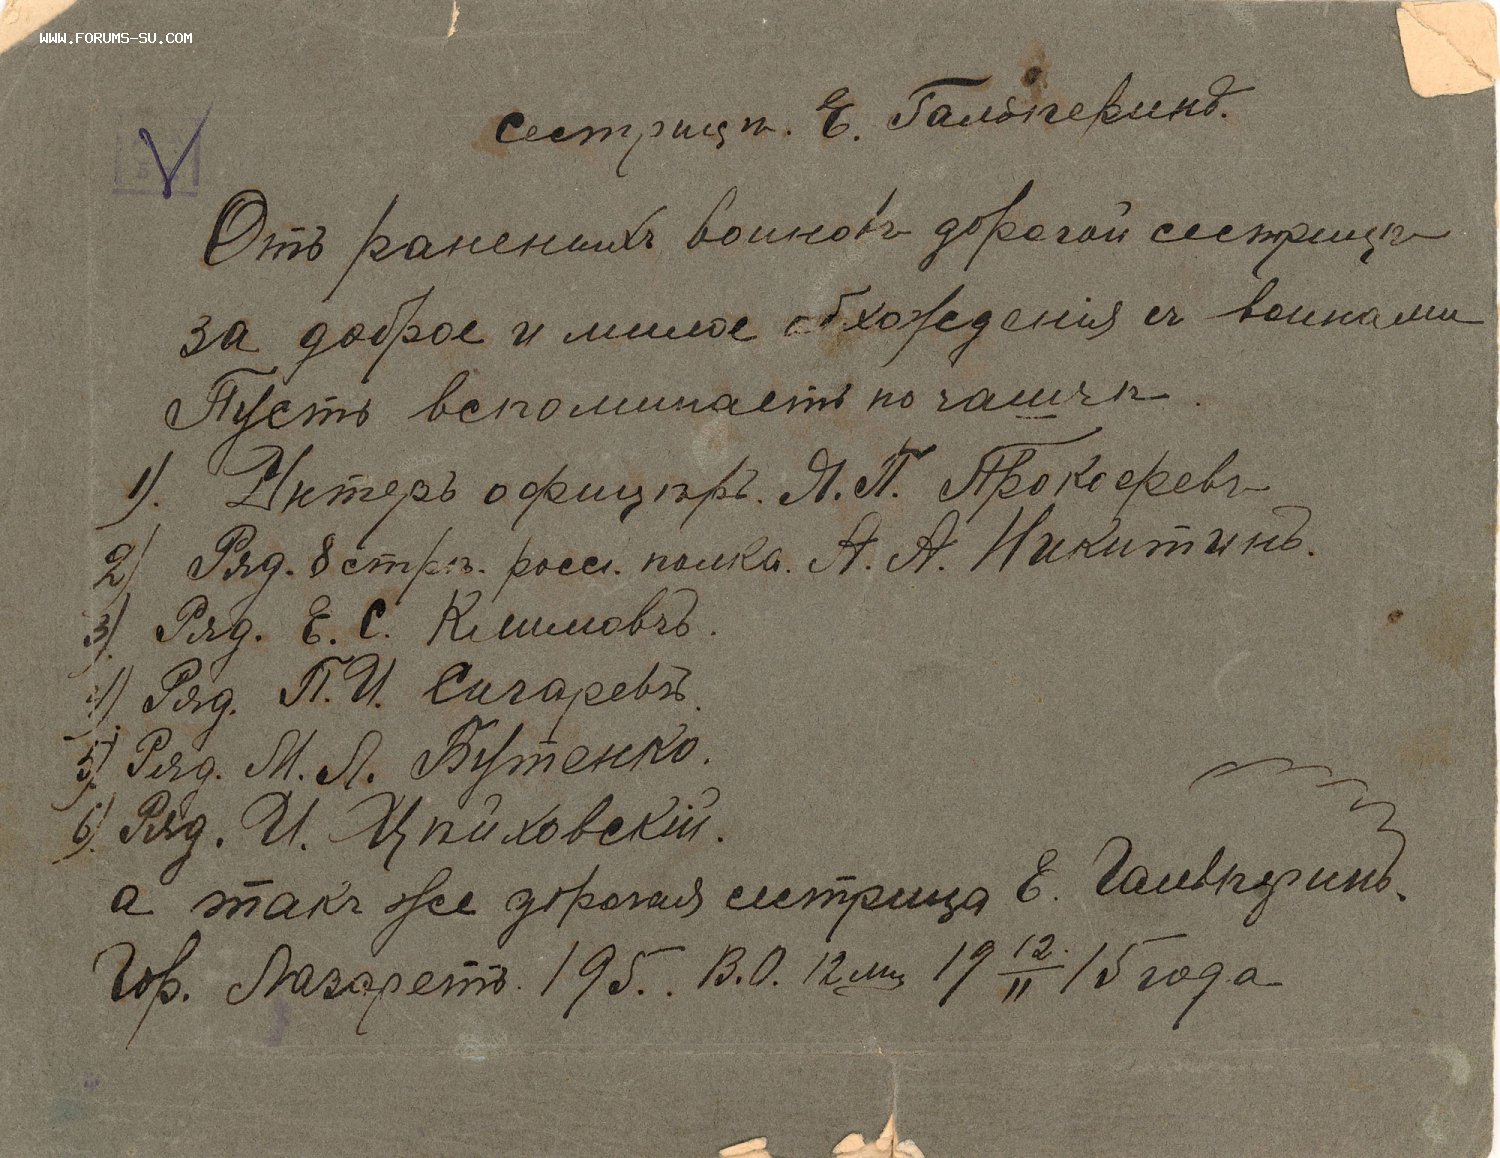 WWW.FORUMS-SU.COM
сестрицѣ. Е. Гальперинъ.
Отъ раненыхъ воиновъ дорогой сестрицѣ
за доброе и милое обхожденія съ воинами
Пусть вспоминаетъ почашчѣ.
1). Унтеръ офицѣръ. Я. П. Прокофевъ
2) Ряд. 8 стрѣ. росси. полка. А. А. Никитинъ.
3) Ряд. Е. С. Климовъ.
4) Ряд. П. И. Сигаревъ.
5) Ряд. М. Л. Бутенко.
6) Ряд. И. Цѣйховскій.
а такъ же дорогая сестрица Е. Гальперинъ.
Гор. Лазаретъ. 195. В.О. 12 лин 19 12/II 15 года